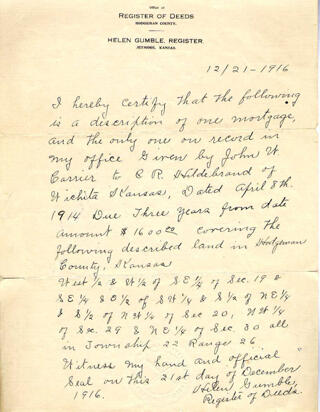 Office of
REGISTER OF DEEDS
HODGEMAN COUNTY.
HELEN GUMBLE, REGISTER.
JETMORE, KANSAS.
12/21-1916
I hereby certify that the following
is a description of one mortgage,
and the only one on record in
my office Given by John W.
Carrier to C R Hildebrand of
Wichita Kansas, Dated April 8th.
1914 Due Three Years from date
Amount $1600.00 covering the
following described land in Hodgeman
County, Kansas
West 1/2 & W 1/2 of SE 1/4 of Sec. 19 &
SE 1/4 & E 1/2 of SW 1/4 & S 1/2 of NE 1/4
& S 1/2 of NW 1/4 of Sec 20, NW 1/4
of Sec. 29 & NE 1/4 of Sec. 30 all
in Township 22 Range 26.
Witness my hand and official
Seal on this 21st day of December
1916.
Helen Gumble,
Register of Deeds.